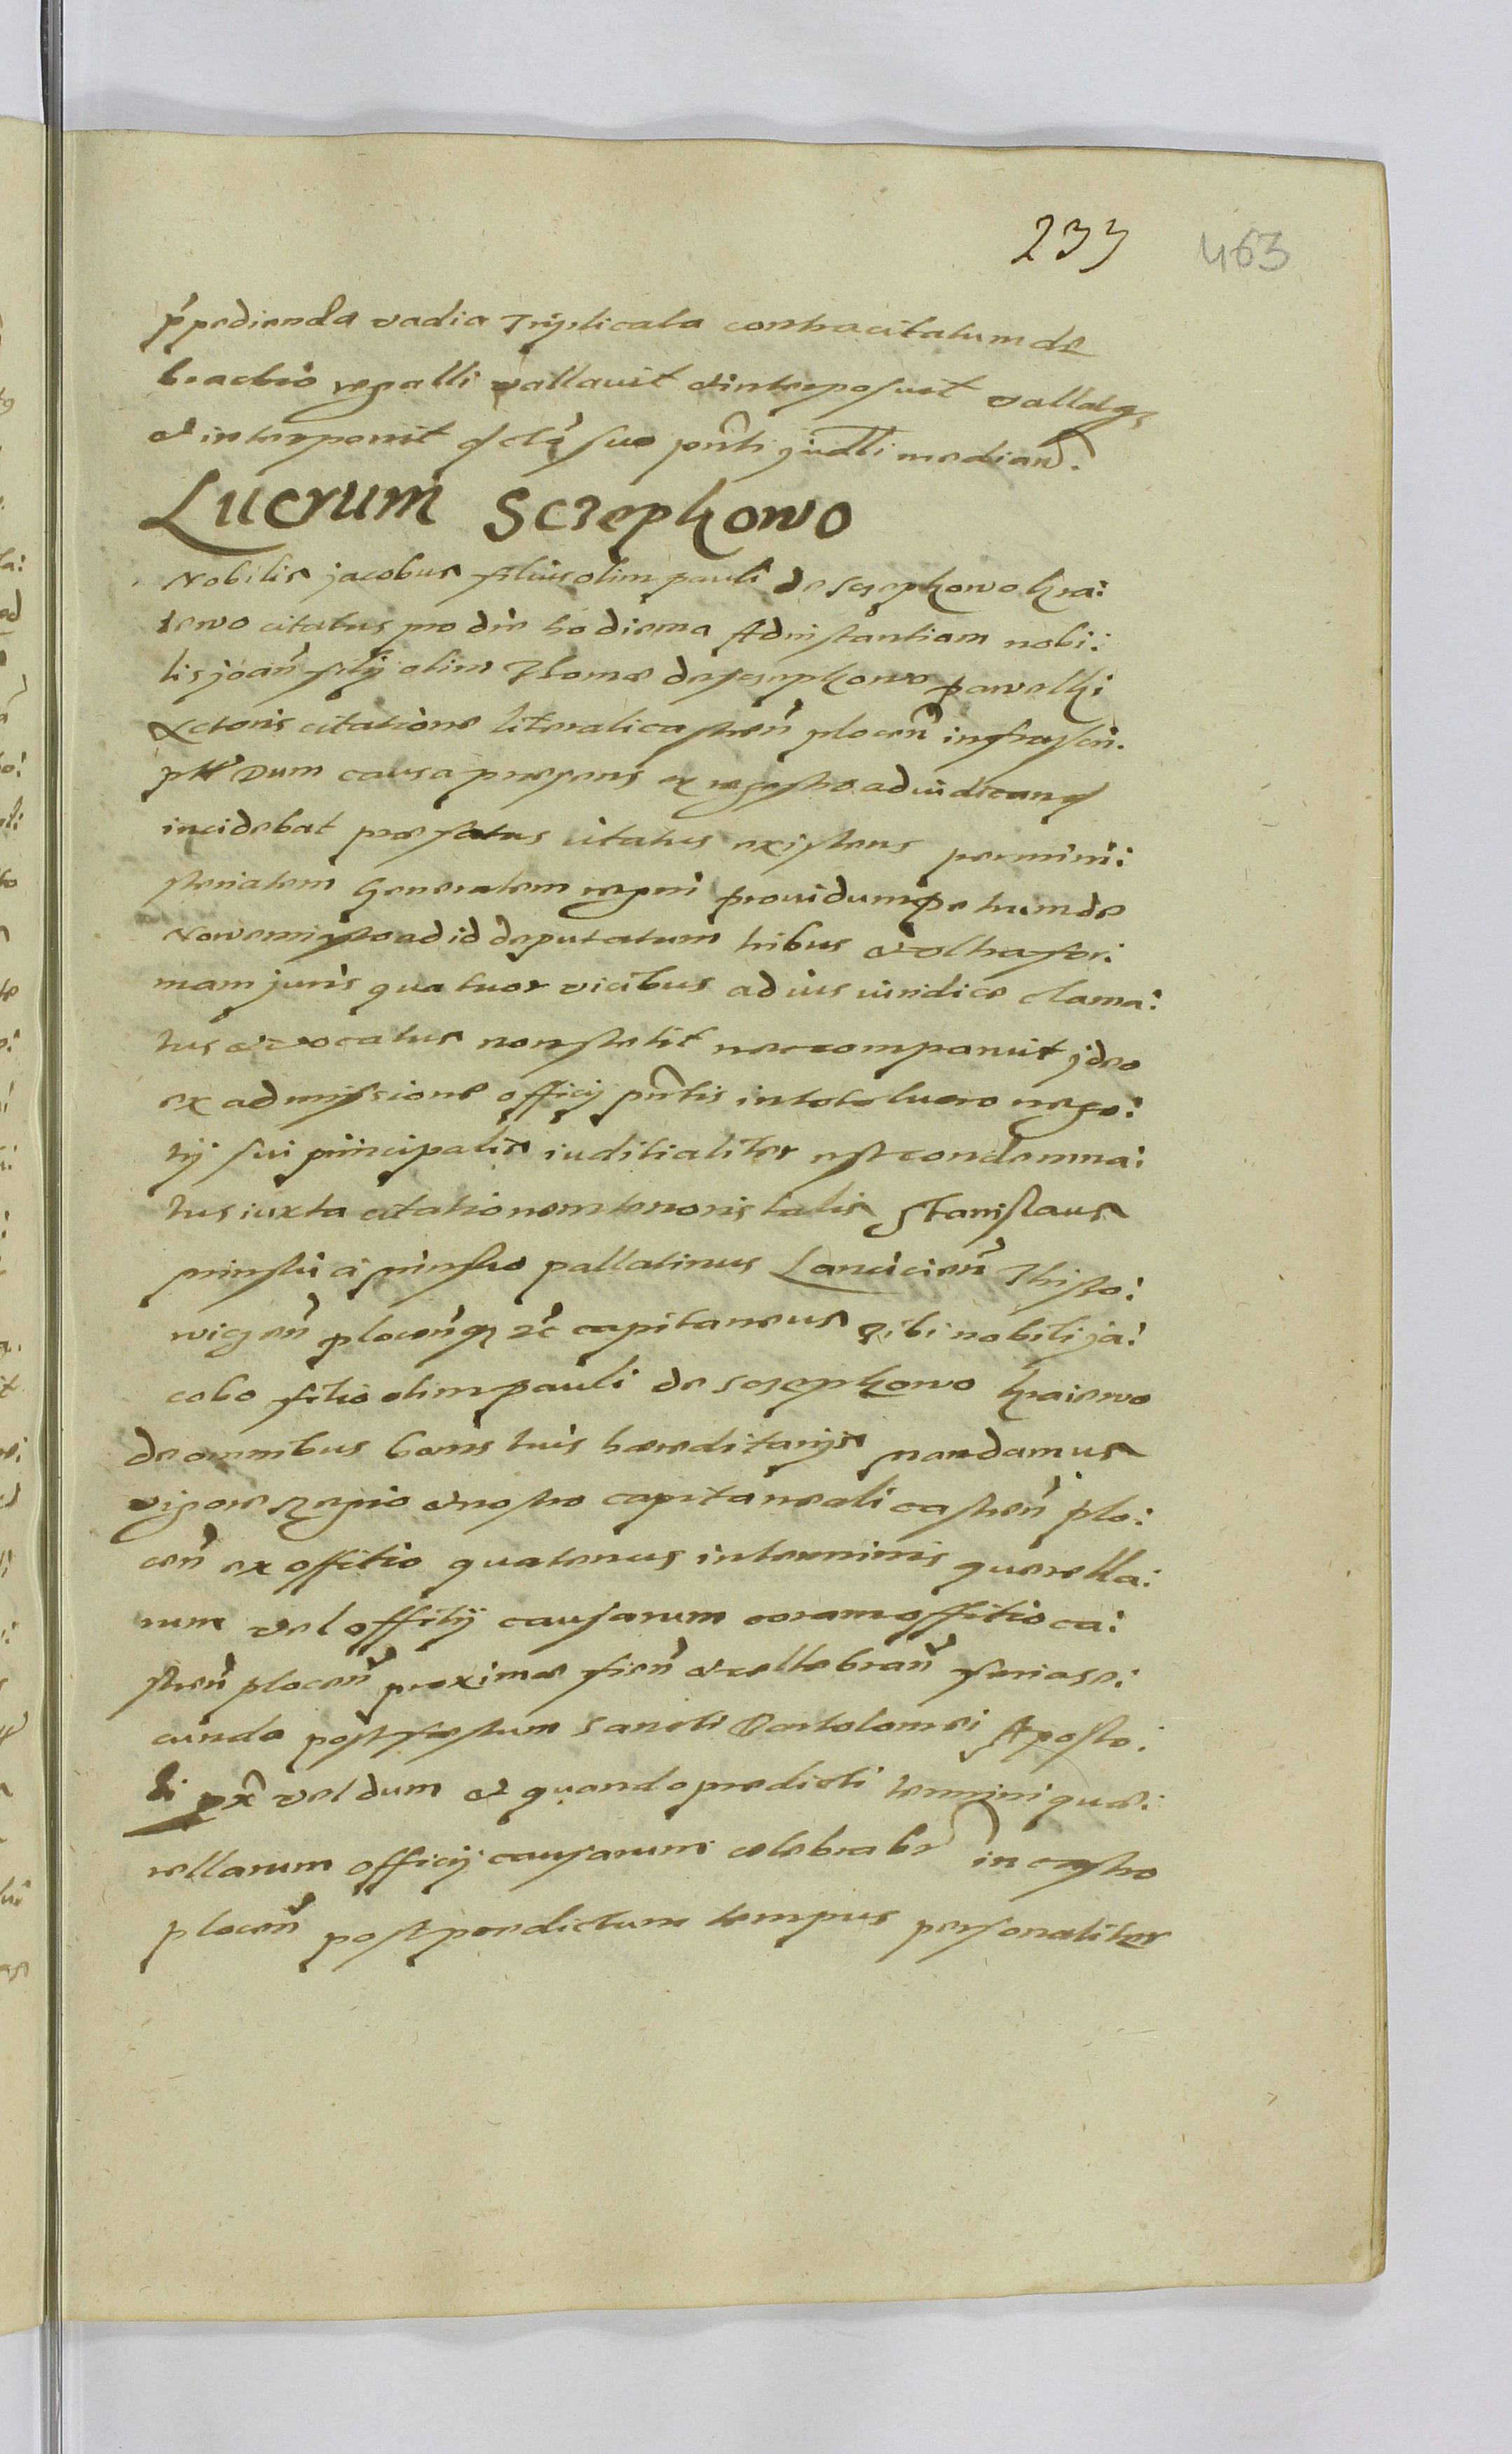 233 463
p̃pedienda vadia Triplicata contra citatum de
brachio regalli vallauit et interposuit vallatq
et interponit suo pñti judli median.
Lucrum Sczepkowo
Nobilis jacobus filius olim pauli de sczepkowo kra:
iewo citatus pro die hodierna Ad instantiam nobi:
lis joañ filÿ olim Thomæ de sczepkowo pawelki
Actoris citatione literali castreñ ploceñ infrascri.
Dum causa presens ex regestro ad iudicand
incidebat præfatus citatus existens per mini:
sterialem Generalem regni prouidum petrum de
Nowemiysto ad id deputatum tribus et vltra for:
mam juris quatuor vicibus ad ius iuridice clama:
tus et vocatus non stetit nec comparuit jdeo
ex admissione officÿ pñtis in toto lucro nego:
tÿ sui principalis iuditialiter est condemna:
tus iuxta citationem tenoris talis Stanislaus
minski à minsko pallatinus Lanciciеñ Thisto:
wiczeñ ploceñq zc capitaneus Tibi nobili ja:
cobo filio olim pauli de sczepkowo kraiewo
de omnibus bonis tuis hæreditarÿs mandamus
vigore Regio et nostro capitaneali castreñ plo:
ceñ ex offitio quatenus in terminis querella:
rum vel offitÿ causarum coram offitio ca:
streñ ploceñ proxime fieñ et cellebrañ feria se:
cunda post festum sancti Bartolomei Aposto:
li px̃ vel dum et quando predicti termini quæ:
rellarum officÿ causarum celebrabr in castro
ploceñ post predictum tempus personaliter